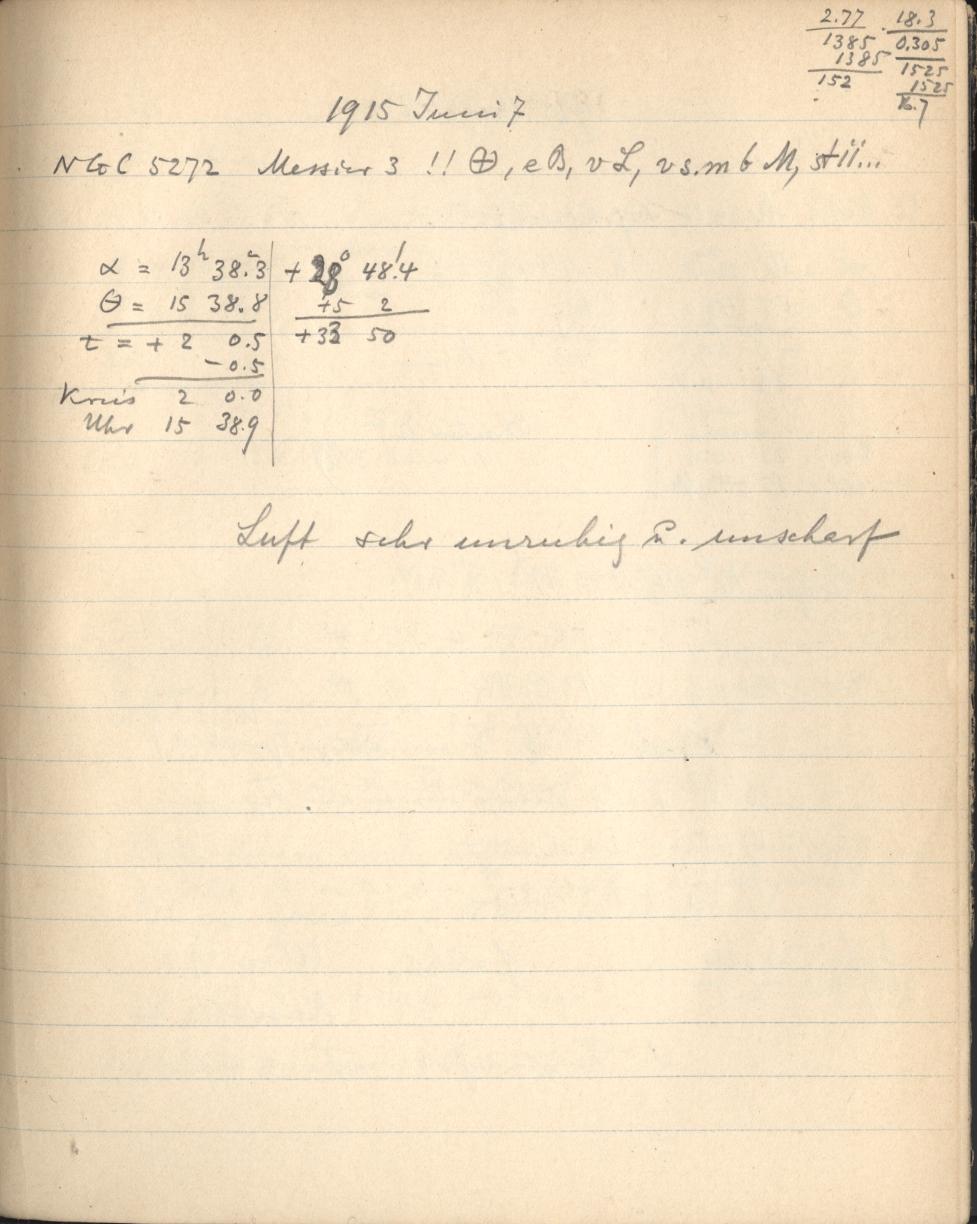 2.77 18.3
1385 0.305
1385 1525
152 1525
16.7
1915 Juni 7
NGC 5272 Messier 3 !! ⊕, eB, vL, vs.mbM, st11...
α = 13ʰ 38.3 +28° 48!4
θ = 15 38.8 +5 2
t = + 2 0.5 +33 50
-0.5
Kreis 2 0.0
Uhr 15 38.9
Luft sehr unruhig u. unscharf